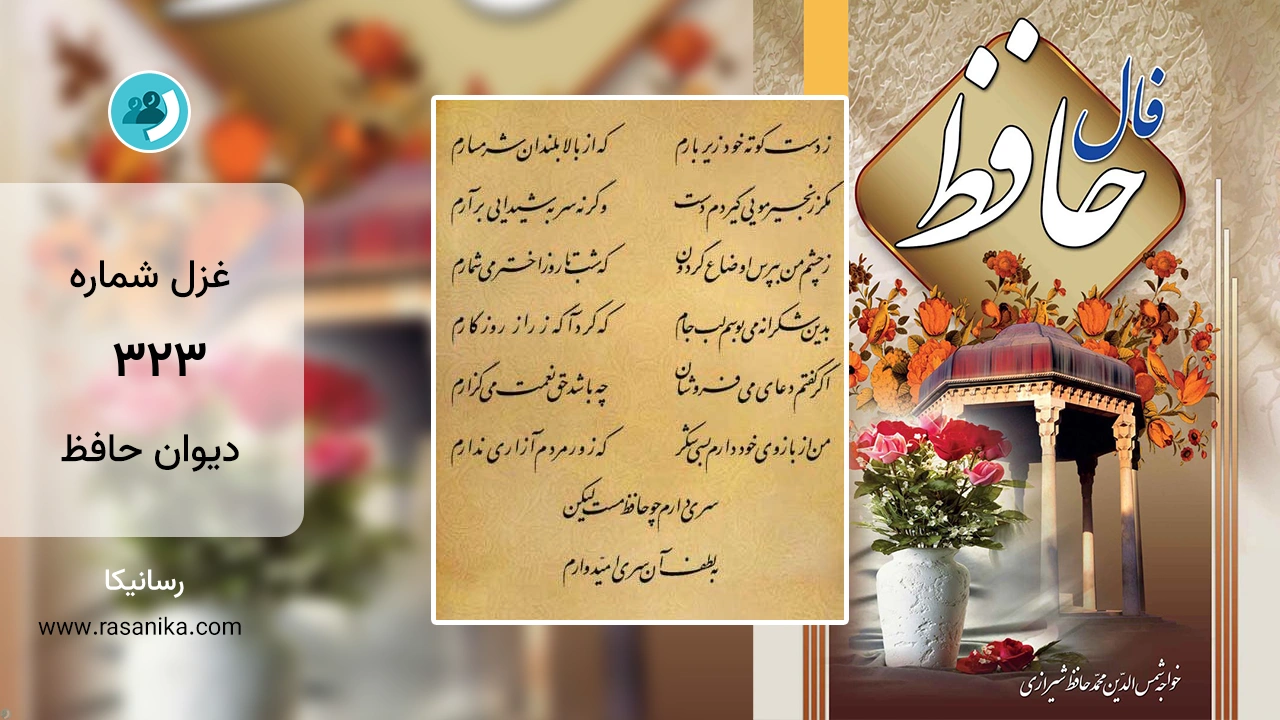 فال
حافظ
ز دست کوته خود زیر بارم که از بالا بلندان شرمسارم
مگر زنجیر مویی گیردم دست وگر نه سر به شیدایی برآرم
ز چشم من بپرس اوضاع گردون که شب تا روز اختر می شمارم
بدین شکرانه می بوسم لب جام که کرد آگه ز راز روزگارم
اگر گفتم دعای می فروشان چه باشد حق نعمت می گزارم
من از بازوی خود دارم بسی شکر که زور مردم آزاری ندارم
سری دارم چو حافظ مست لیکن
به لطف آن سری امیّدوارم
غزل شماره
۳۲۳
دیوان حافظ
رسانیکا
www.rasanika.com
خواجه شمس الدّین محمّد حافظ شیرازی